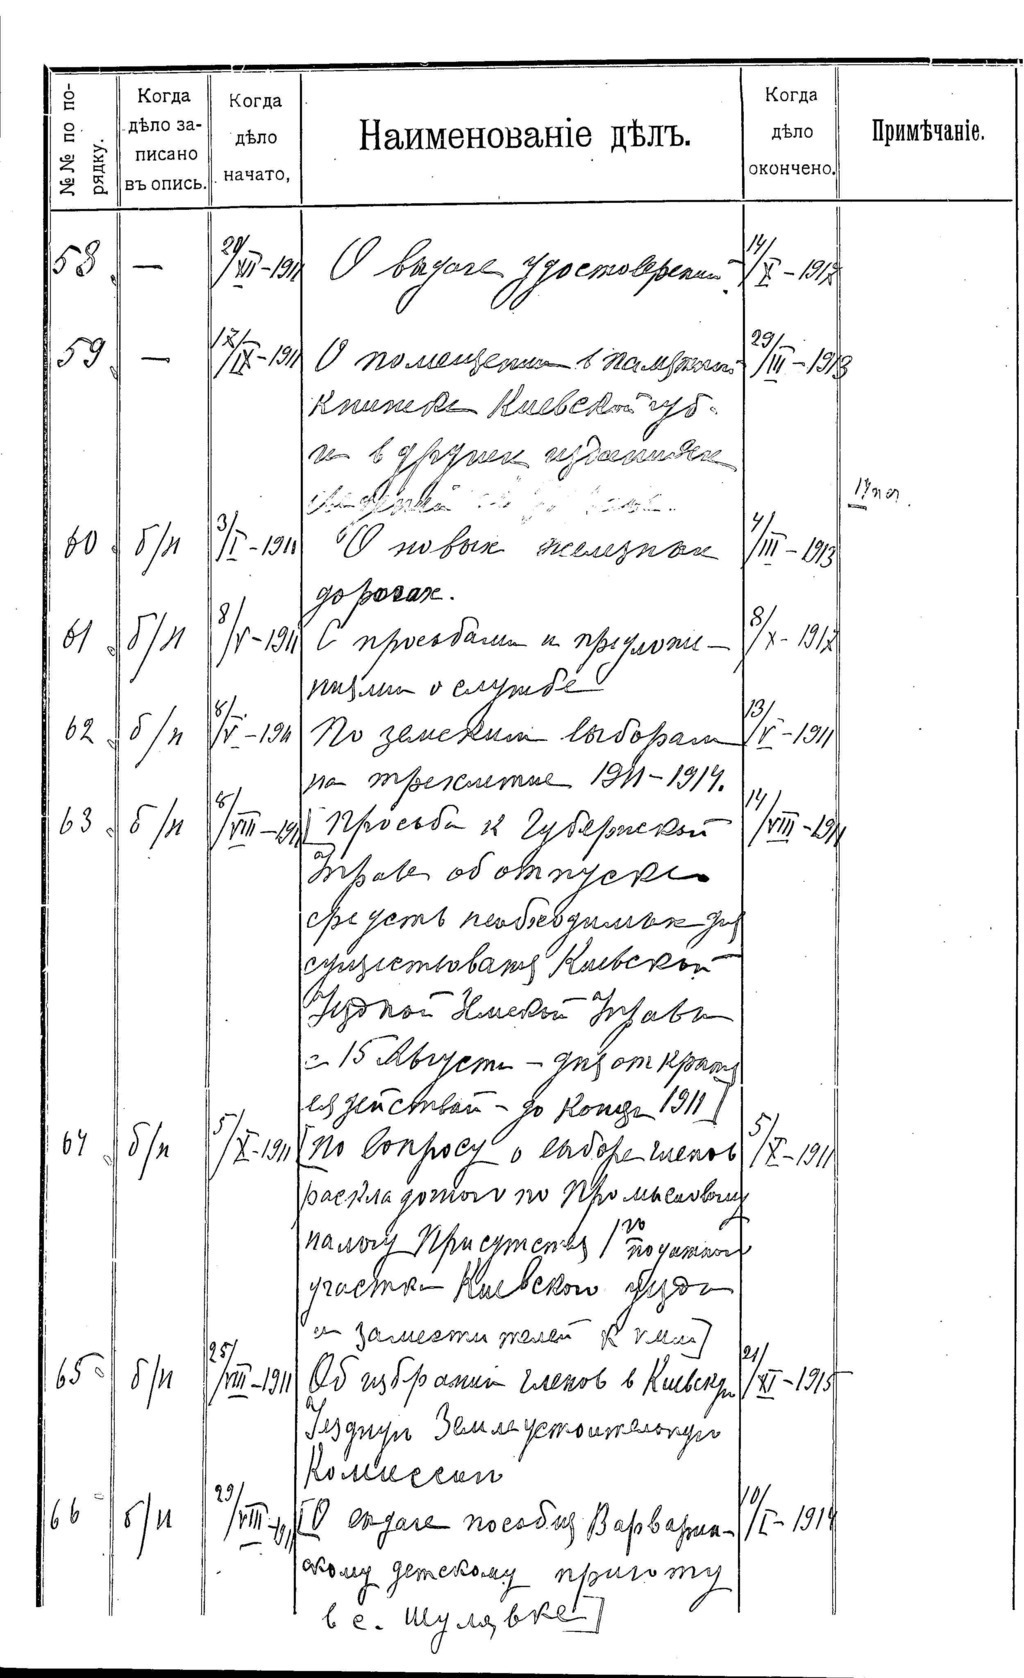 №№ по по-
рядку.
Когда
дѣло за-
писано
въ опись.
Когда
дѣло
начато,
Наименованіе дѣлъ.
Когда
дѣло
окончено.
Примѣчаніе.
58 — 20/XII-1911 О выдаче удостоверений 14/X-1917
59 — 17/IX-1911 О помещении в памятной 29/III-1913
книжке Киевской губ.
и в других изданиях
сведений
17 п
60 б/н 3/I-1911 О новых железных 4/III-1913
дорогах.
61 б/н 8/V-1911 С просьбами и предложе- 8/X-1917
ниями о службе
62 б/н 8/V-1911 По земским выборам 13/V-1911
на трехлетие 1911-1914.
63 б/н 8/VIII-1911 [Просьба к Губернской 14/VIII-1911
Управе об отпуске
средств необходимых для
существования Киевской
Уездной Земской Управы
с 15 Августа - дня открытия
ея действий - до конца 1911]
64 б/н 5/X-1911 [По вопросу о выборе членов 5/X-1911
раскладочного по Промысловому
налогу Присутствия 1го податного
участка Киевского уезда
и заместителей к ним]
65 б/н 25/VIII-1911 Об избрании членов в Киевскую 21/XI-1915
Уездную Землеустроительную
Комиссию
66 б/н 29/VIII-1911 [О выдаче пособия Варварин- 10/I-1914
скому детскому приюту
в с. Шулявке]